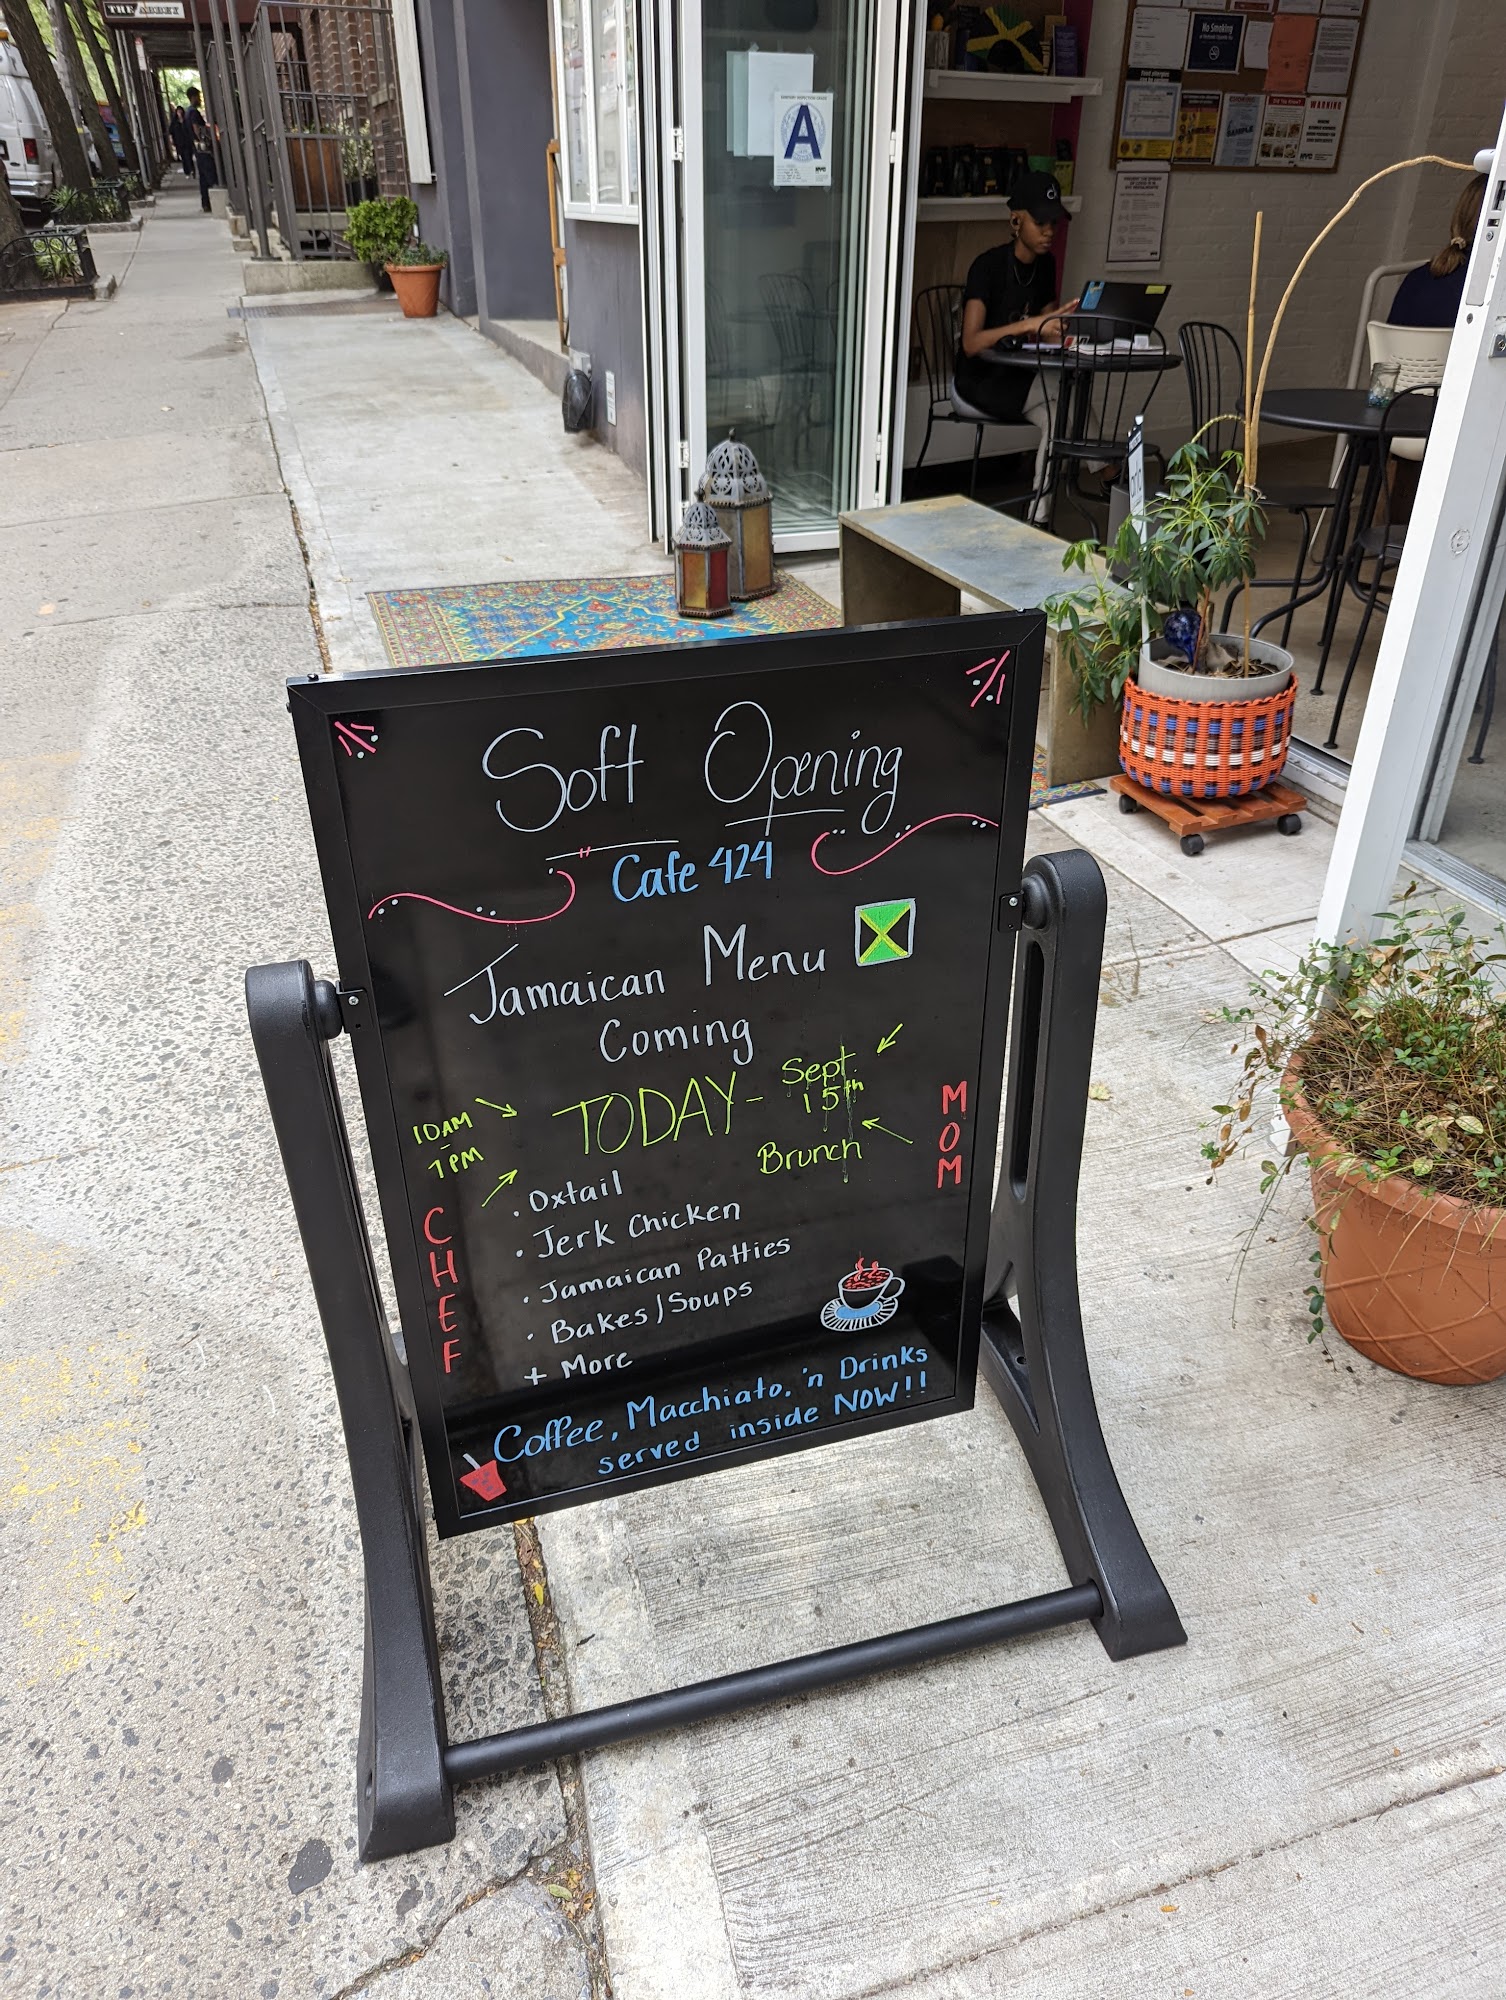 THE ABBEY
A
No Smoking
WARNING
Soft Opening
Cafe 424
Jamaican Menu
Coming
TODAY - Sept. 15th
Brunch
10AM
-
7PM
CHEF
MOM
. Oxtail
. Jerk Chicken
. Jamaican Patties
. Bakes/Soups
+ More
Coffee, Macchiato, 'n Drinks
served inside NOW!!